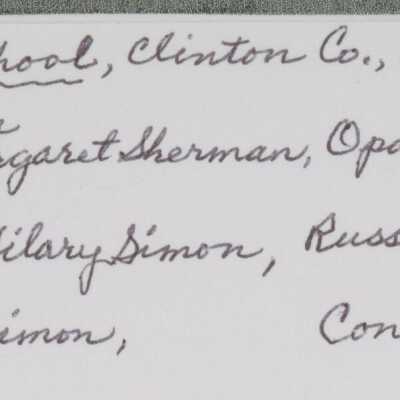 hool, Clinton Co.,
garet Sherman, Opa
ilary Simon, Russ
imon, Con